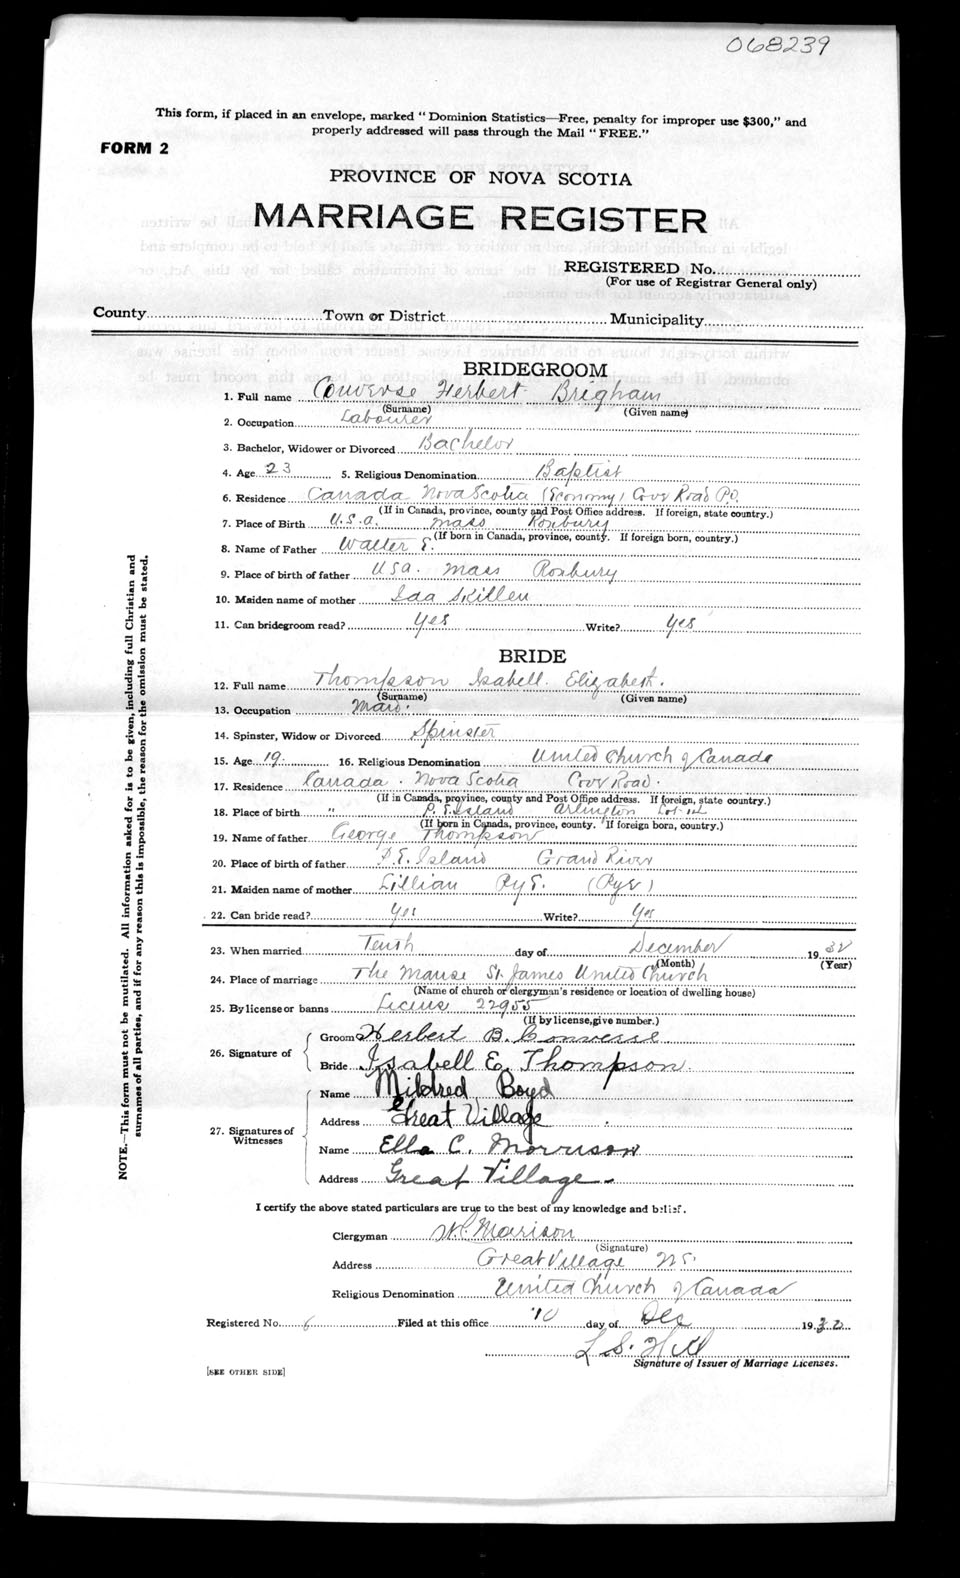 068239
This form, if placed in an envelope, marked "Dominion Statistics—Free, penalty for improper use $300," and
properly addressed will pass through the Mail "FREE."
FORM 2
PROVINCE OF NOVA SCOTIA
MARRIAGE REGISTER
REGISTERED No.
(For use of Registrar General only)
County Town or District Municipality
BRIDEGROOM
1. Full name Converse Herbert Brigham
(Surname) (Given name)
2. Occupation Labourer
3. Bachelor, Widower or Divorced Bachelor
4. Age 23 5. Religious Denomination Baptist
6. Residence Canada Nova Scotia (Economy) Cove Road P.O.
(If in Canada, province, county and Post Office address. If foreign, state country.)
7. Place of Birth U.S.a. mass Roxbury
(If born in Canada, province, county. If foreign born, country.)
8. Name of Father Walter E.
9. Place of birth of father USa. mass Roxbury
10. Maiden name of mother Ida Skillen
11. Can bridegroom read? Yes Write? Yes
BRIDE
12. Full name Thompson Isabell Elizabeth.
(Surname) (Given name)
13. Occupation Maid.
14. Spinster, Widow or Divorced Spinster
15. Age 19. 16. Religious Denomination United Church of Canada
17. Residence Canada. Nova Scotia Cove Road.
(If in Canada, province, county and Post Office address. If foreign, state country.)
18. Place of birth " P. E. Island Arlington Lot 14
(If born in Canada, province, county. If foreign born, country.)
19. Name of father George Thompson
20. Place of birth of father P.E. Island Grand River
21. Maiden name of mother Lillian Pye. (Pye)
22. Can bride read? Yes Write? Yes
23. When married Tenth day of December 1932
(Month) (Year)
24. Place of marriage The Manse St. James United Church
(Name of church or clergyman's residence or location of dwelling house)
25. By license or banns License 22955
(If by license, give number.)
26. Signature of
Groom Herbert B. Converse
Bride Isabell E. Thompson.
27. Signatures of
Witnesses
Name Mildred Boyd
Address Great Village
Name Ella C. Morrison
Address Great Village.
I certify the above stated particulars are true to the best of my knowledge and belief.
Clergyman Marison
(Signature)
Address Great Village N.S.
Religious Denomination United Church of Canada
Registered No. 6 Filed at this office 10 day of Dec 1932
L. S. Hill
Signature of Issuer of Marriage Licenses.
[SEE OTHER SIDE]
NOTE.—This form must not be mutilated. All information asked for is to be given, including full Christian and
surnames of all parties, and if for any reason this is impossible, the reason for the omission must be stated.